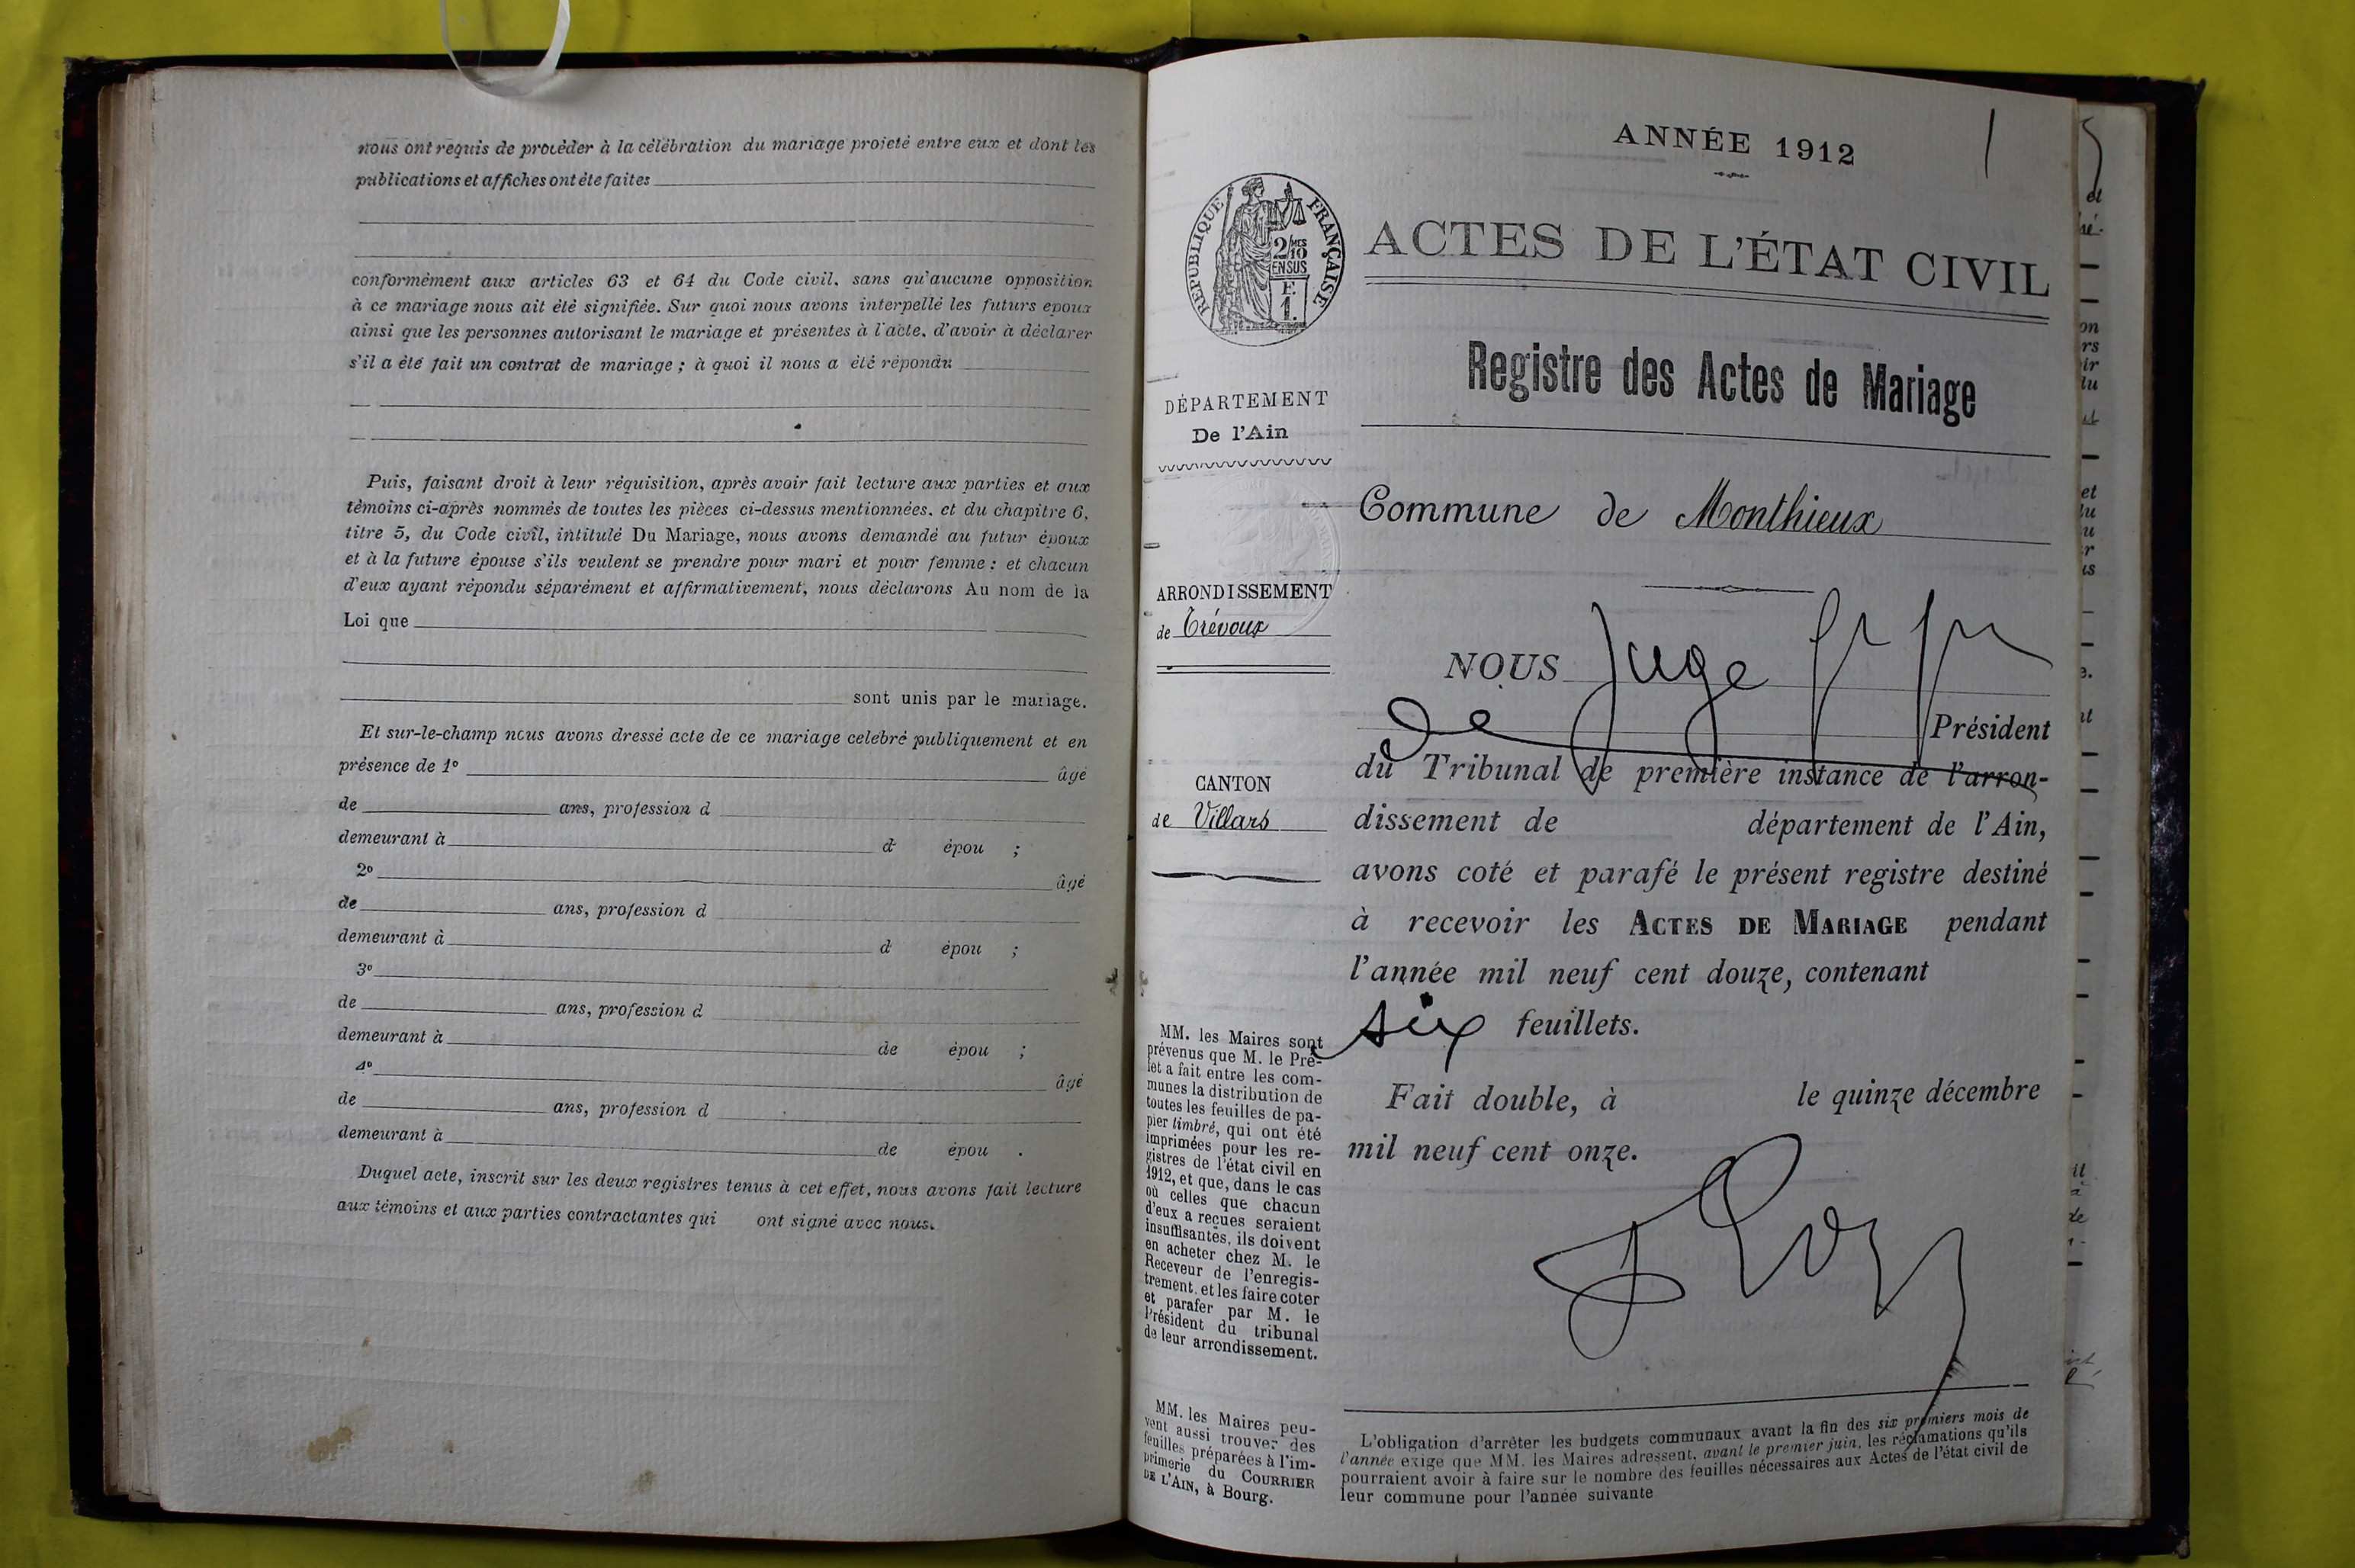 nous ont requis de procéder à la célébration du mariage projeté entre eux et dont les
publications et affiches ont été faites
conformément aux articles 63 et 64 du Code civil, sans qu'aucune opposition
à ce mariage nous ait été signifiée. Sur quoi nous avons interpellé les futurs époux
ainsi que les personnes autorisant le mariage et présentes à l'acte, d'avoir à déclarer
s'il a été fait un contrat de mariage ; à quoi il nous a été répondu
Puis, faisant droit à leur réquisition, après avoir fait lecture aux parties et aux
témoins ci-après nommés de toutes les pièces ci-dessus mentionnées, et du chapitre 6,
titre 5, du Code civil, intitulé Du Mariage, nous avons demandé au futur époux
et à la future épouse s'ils veulent se prendre pour mari et pour femme : et chacun
d'eux ayant répondu séparément et affirmativement, nous déclarons Au nom de la
Loi que
sont unis par le mariage.
Et sur-le-champ nous avons dressé acte de ce mariage célébré publiquement et en
présence de 1º âgé
de ans, profession d
demeurant à d épou ;
2º âgé
de ans, profession d
demeurant à d épou ;
3º
de ans, profession d
demeurant à de épou ;
4º âgé
de ans, profession d
demeurant à de épou .
Duquel acte, inscrit sur les deux registres tenus à cet effet, nous avons fait lecture
aux témoins et aux parties contractantes qui ont signé avec nous.
ANNÉE 1912
RÉPUBLIQUE FRANÇAISE
2/10 MES
EN SUS
E.
1.
ACTES DE L'ÉTAT CIVIL
Registre des Actes de Mariage
DÉPARTEMENT
De l'Ain
Commune de Monthieux
ARRONDISSEMENT
de Trévoux
CANTON
de Villars
NOUS Juge
de Président
du Tribunal de première instance de l'arron-
dissement de département de l'Ain,
avons coté et parafé le présent registre destiné
à recevoir les ACTES DE MARIAGE pendant
l'année mil neuf cent douze, contenant
six feuillets.
Fait double, à le quinze décembre
mil neuf cent onze.
MM. les Maires sont
prévenus que M. le Pré-
fet a fait entre les com-
munes la distribution de
toutes les feuilles de pa-
pier timbré, qui ont été
imprimées pour les re-
gistres de l'état civil en
1912, et que, dans le cas
où celles que chacun
d'eux a reçues seraient
insuffisantes, ils doivent
en acheter chez M. le
Receveur de l'enregis-
trement, et les faire coter
et parafer par M. le
Président du tribunal
de leur arrondissement.
MM. les Maires peu-
vent aussi trouver des
feuilles préparées à l'im-
primerie du COURRIER
DE L'AIN, à Bourg.
L'obligation d'arrêter les budgets communaux avant la fin des six premiers mois de
l'année exige que MM. les Maires adressent, avant le premier juin, les réclamations qu'ils
pourraient avoir à faire sur le nombre des feuilles nécessaires aux Actes de l'état civil de
leur commune pour l'année suivante